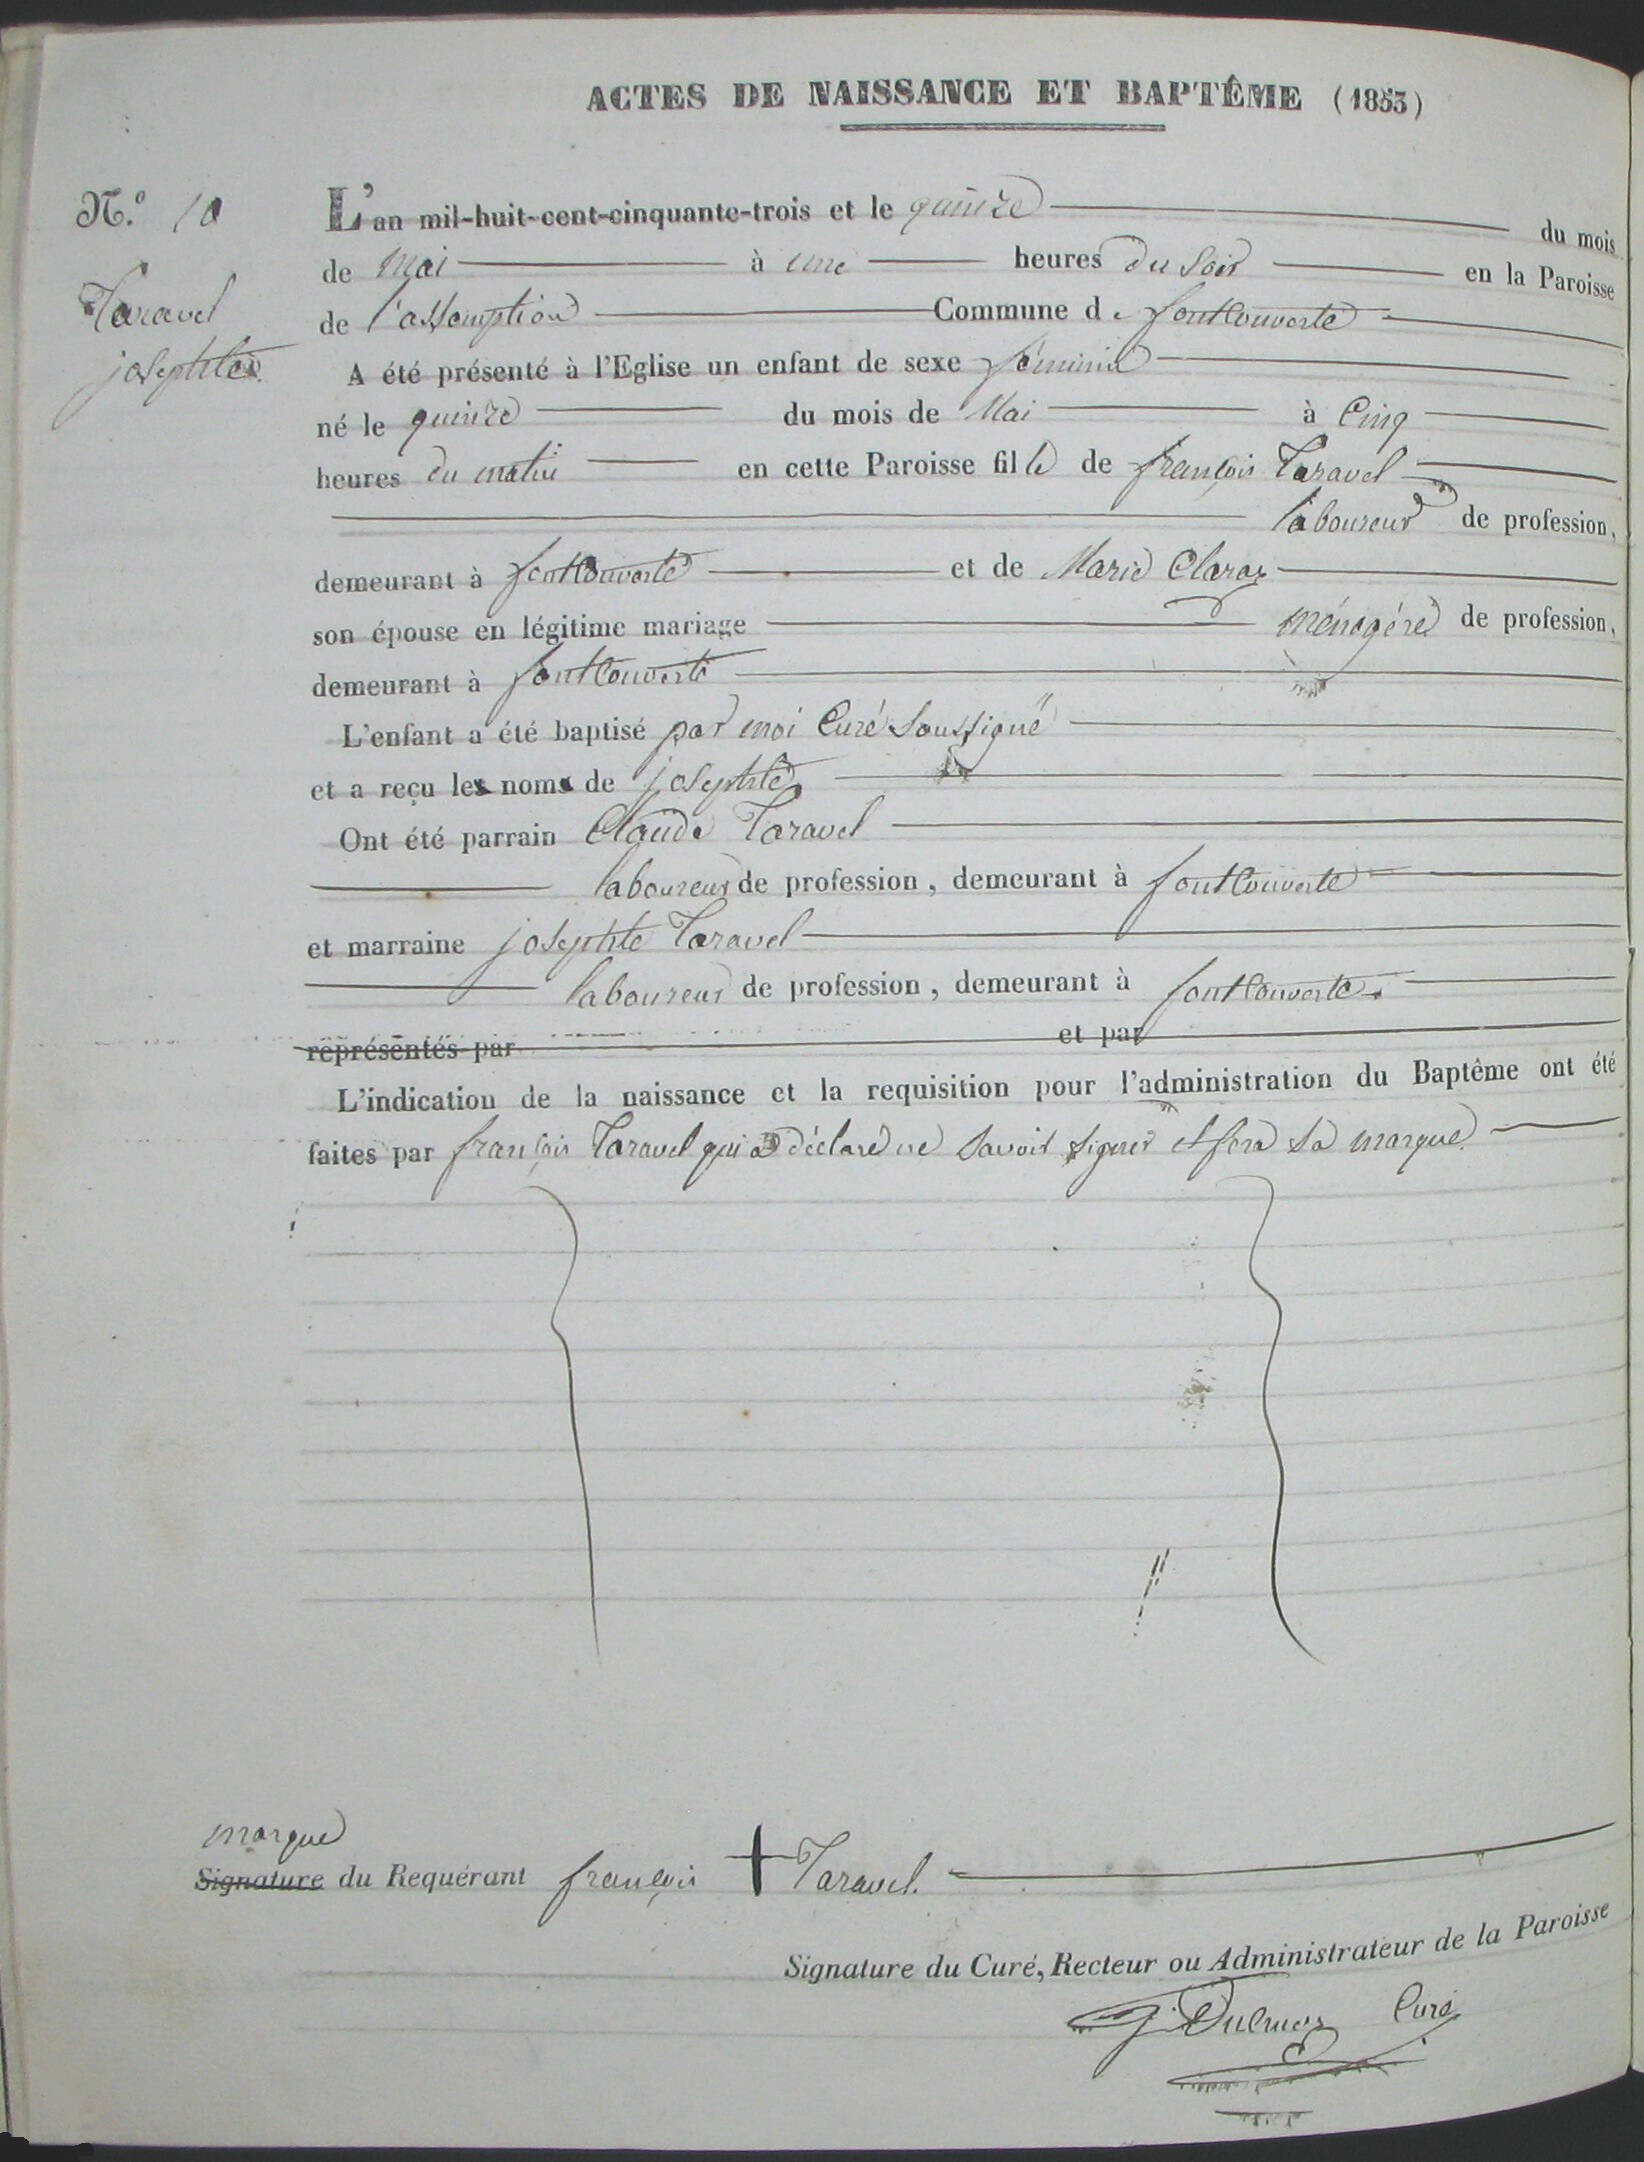 ACTES DE NAISSANCE ET BAPTÊME (1853)
N.o 10
Taravel
josephte
L'an mil-huit-cent-cinquante-trois et le quinze du mois
de Mai à une heures du soir en la Paroisse
de l'assomption Commune de fontcouverte
A été présenté à l'Eglise un enfant de sexe féminin
né le quinze du mois de Mai à Cinq
heures du matin en cette Paroisse fille de françois Taravel
laboureur de profession,
demeurant à fontcouverte et de Marie Claraz
son épouse en légitime mariage ménagére de profession,
demeurant à fontcouverte
L'enfant a été baptisé par moi Curé Soussigné
et a reçu les noms de josephte
Ont été parrain Claude Taravel
laboureur de profession, demeurant à fontcouverte
et marraine josephte Taravel
laboureur de profession, demeurant à fontcouverte
représentés par et par
L'indication de la naissance et la requisition pour l'administration du Baptême ont été
faites par françois Taravel qui a déclaré ne savoir signer et fera sa marque
marque
Signature du Requérant françois + Taravel.
Signature du Curé, Recteur ou Administrateur de la Paroisse
Curé